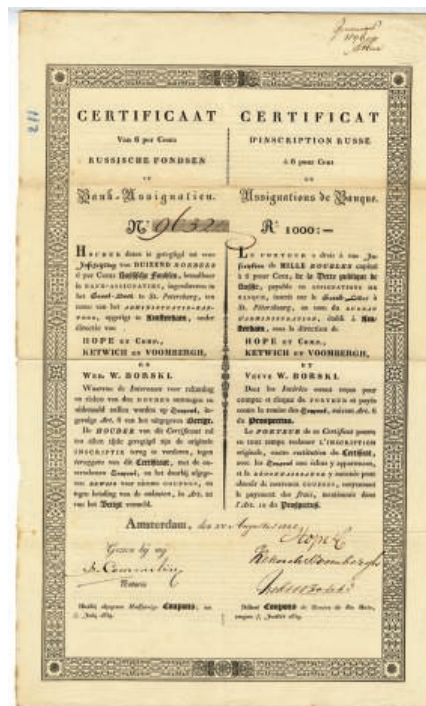 112
CERTIFICAAT
Van 6 per Cents
RUSSISCHE FONDSEN
Bank-Assignatien.
Nº 9632
HOUDER dezes is geregtigd tot eene
Inschrijving van DUIZEND ROEBELS
6 per Cents Russische Fondsen, betaalbaar
in BANK-ASSIGNATIEN, ingeschreven in
het Groot-Boek te St. Petersburg, ten
name van het ADMINISTRATIE-KAN-
TOOR, opgerigt te Amsterdam, onder
directie van
HOPE ET COMP.,
KETWICH ET VOOMBERGH,
EN
WED. W. BORSKI.
Waarvan de Interessen voor rekening
en risico van den HOUDER ontvangen en
uitbetaald zullen worden op Coupons, in-
gevolge Art. 6 van het uitgegeven Berigt.
De HOUDER van dit Certificaat zal
ten allen tijde geregtigd zijn de originele
INSCRIPTIE terug te vorderen, tegen
teruggave van dit Certificaat, met de on-
verschenen Coupons, en het daarbij afgege-
ven BEWIJS voor nieuwe COUPONS, en
tegen betaling van de onkosten, in Art. 10
van het Berigt vermeld.
CERTIFICAT
D'INSCRIPTION RUSSE
à 6 pour Cent
EN
Assignations de Banque.
Rº 1000:—
LE PORTEUR a droit à une In-
scription de MILLE ROUBLES capital
à 6 pour Cent, de la Dette publique de
Russie, payable en ASSIGNATIONS DE
BANQUE, inscrit sur le Grand-Livre à
St. Petersbourg, au nom du BUREAU
D'ADMINISTRATION, établi à Am-
sterdam, sous la direction de
HOPE ET COMP.,
KETWICH ET VOOMBERGH,
ET
VEUVE W. BORSKI.
Dont les Intérêts seront reçus pour
compte et risque du PORTEUR et payés
contre la remise des Coupons, suivant Art. 6
du Prospectus.
Le PORTEUR de ce Certificat pourra
en tout temps reclamer L'INSCRIPTION
originale, contre restitution du Certificat,
avec les Coupons non échus y appartenant,
et la RECONNAISSANCE y annexée pour
obtenir de nouveaux COUPONS, moyennant
le payement des frais, mentionnés dans
l'Art. 10 du Prospectus.
Amsterdam, den
Hope &
Ketwich & Voombergh
Notaris
Coupons
Coupons